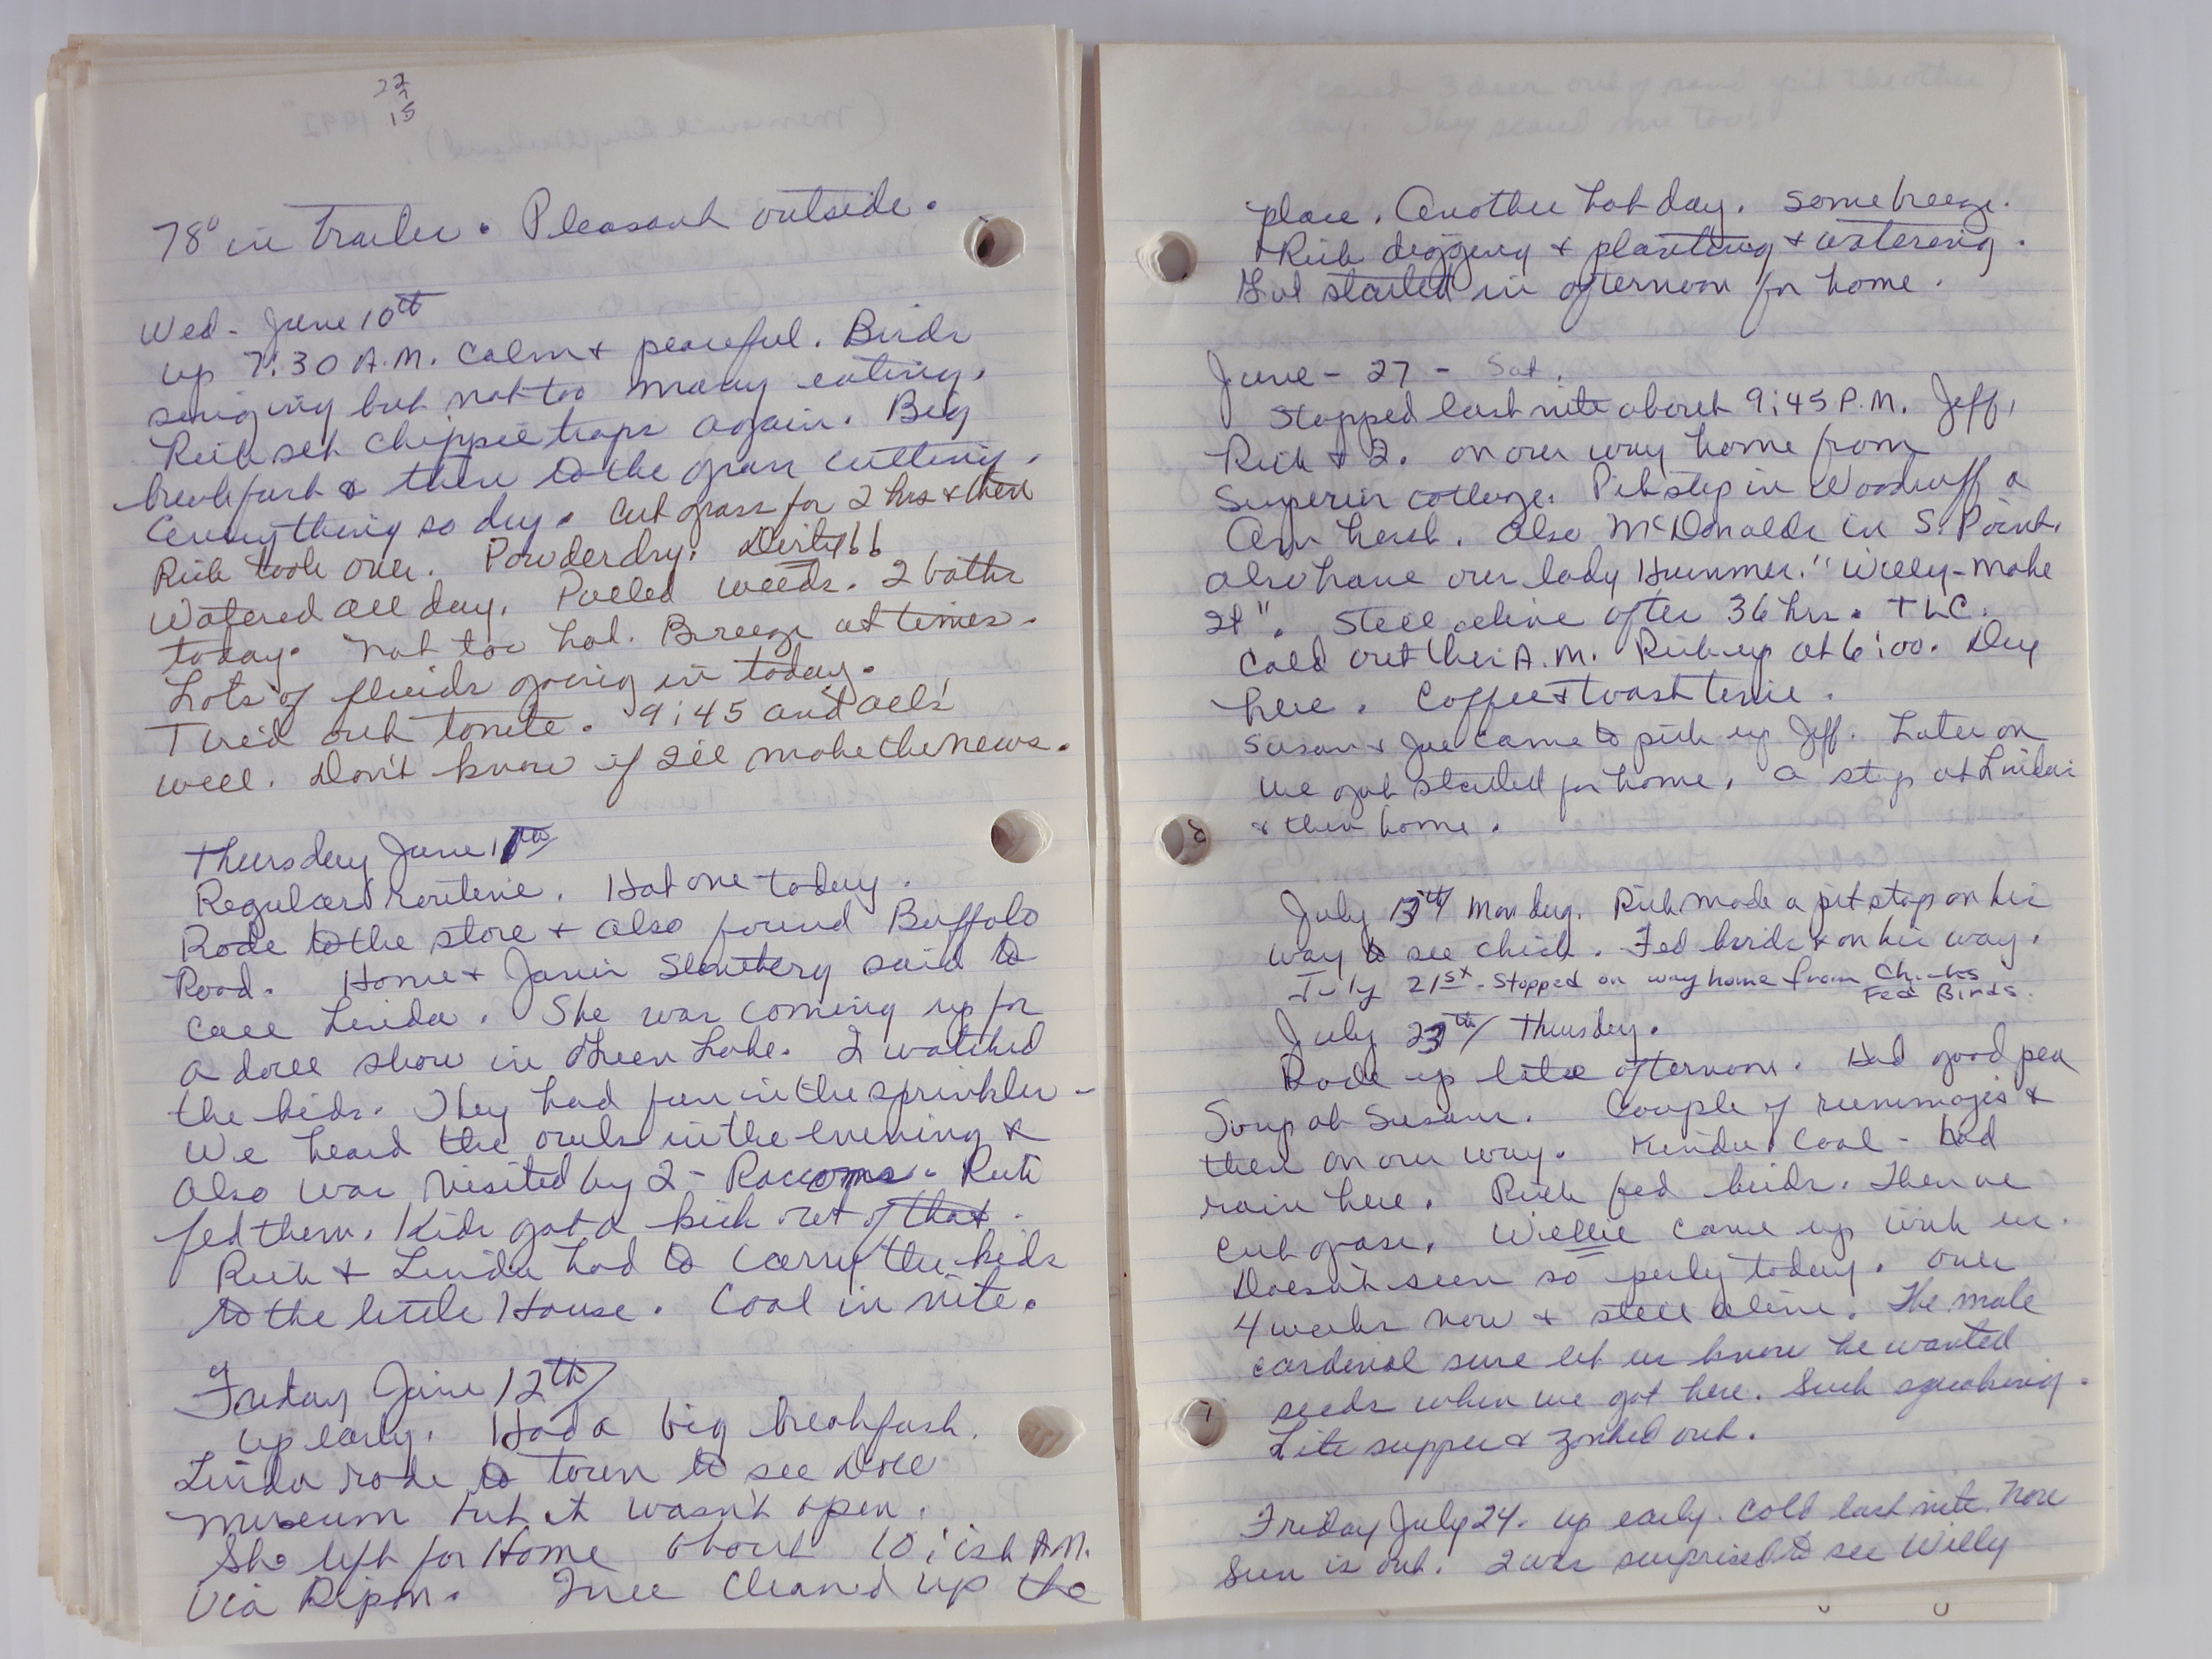 22
7
15
78° in Trailer. Pleasant outside.
Wed - June 10th
up 7:30 A.M. Calm & peaceful. Birds
singing but not too many eating.
Rich set chippie traps again. Big
breakfast & then to the grass cutting.
Everything so dry. Cut grass for 2 hrs & then
Rich took over. Powder dry. Dirty!!
Watered all day. Pulled weeds. 2 baths
today. Not too hot. Breeze at times.
Lots of fluids going in today.
Tired out tonite. 9:45 and all's
well. Don't know if I'll make the news.
Thursday June 11th
Regular routine. Hot one today.
Rode to the store & also found Buffalo
Road. Home & Janis said to
call Linda. She was coming up for
a doll show in Green Lake. I watched
the kids. They had fun in the sprinkler -
We heard the owls in the evening &
also was visited by 2 - Raccoons. Rich
fed them. Kids got a kick out of that.
Rich & Linda had to carry the kids
to the little House. Cool in nite.
Friday June 12th
up early. Had a big breakfast.
Linda rode to town to see Doll
museum but it wasn't open.
She left for Home about 10:ish A.M.
Via Ripon. Cleaned up the
place. Another hot day. Some breeze.
Rich digging & planting & watering.
Got started in afternoon for home.
June - 27 - Sat.
Stopped last nite about 9:45 P.M. Jeff,
Rich & I. on our way home from
Superior cottage. Pit stop in Woodruff a
Also McDonalds in S. Point.
Also have our lady Hummer. "Willy-Make
It". Still alive after 36 hrs. TLC.
Cold out this A.M. Rich up at 6:00. Dry
here. Coffee & toast time.
Susan & Joe came to pick up Jeff. Later on
we got started for home. A stop at Lindas
& then home.
July 13th Monday. Rich made a pit stop on his
way to see Chick. Fed birds & on his way.
July 21st - Stopped on way home from Chicks
Fed Birds.
July 23th Thursday.
Rode up late afternoon. Had good pea
Soup at Susans. Couple of rummages &
then on our way. Kinda Cool - had
rain here. Rich fed birds. Then we
cut grass. Willie came up with us.
Doesn't seem so perky today. Over
4 weeks now & still alive. The male
cardinal sure let us know he wanted
seeds when we got here. Such squeaking.
Lite supper & zonked out.
Friday July 24. up early. Cold last nite. Now
Sun is out. I was surprised to see Willy